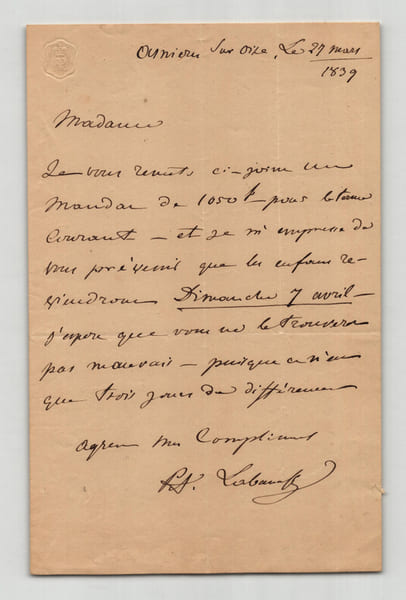 Asnieres sur Oise, Le 27 mars
1839
Madame
Je vous remets ci-joint un
Mandat de 1050 f pour le terme
Courant – et je m'empresse de
vous prévenir que les enfans re-
viendront Dimanche 7 avril –
j'espere que vous ne le trouverez
pas mauvais – puisque ce n'est
que trois jours de différence
agréez mes Compliments